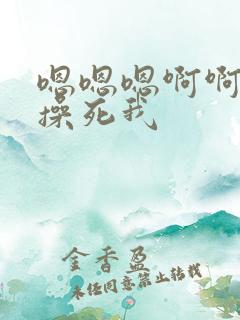 嗯嗯嗯啊啊
操死我
金香盈
未经同意禁止转载